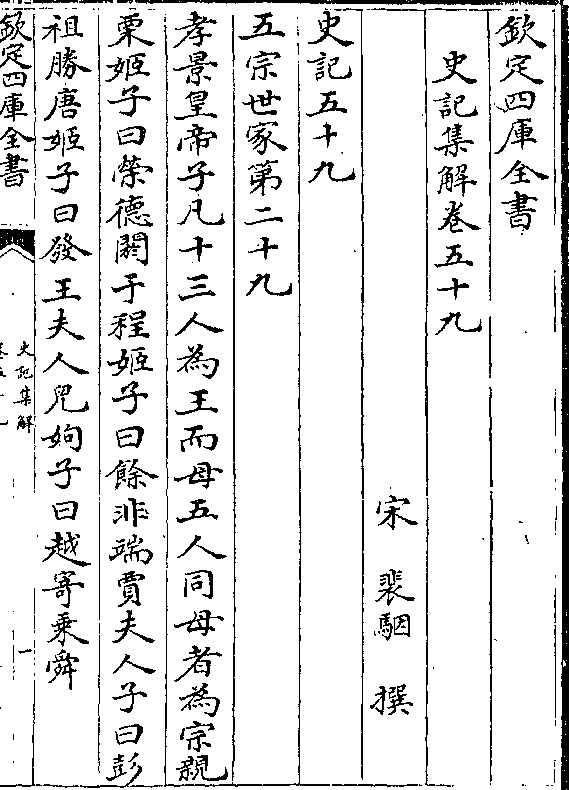 欽定四庫全書
史記集解卷五十九
宋 裴駰 撰
史記五十九
五宗世家第二十九
孝景皇帝子凡十三人為王而母五人同母者為宗親
栗姬子曰榮德閼于程姬子曰餘非端賈夫人子曰彭
祖勝唐姬子曰發王夫人兒姁子曰越寄乘舜
欽定四庫全書
史記集解
一